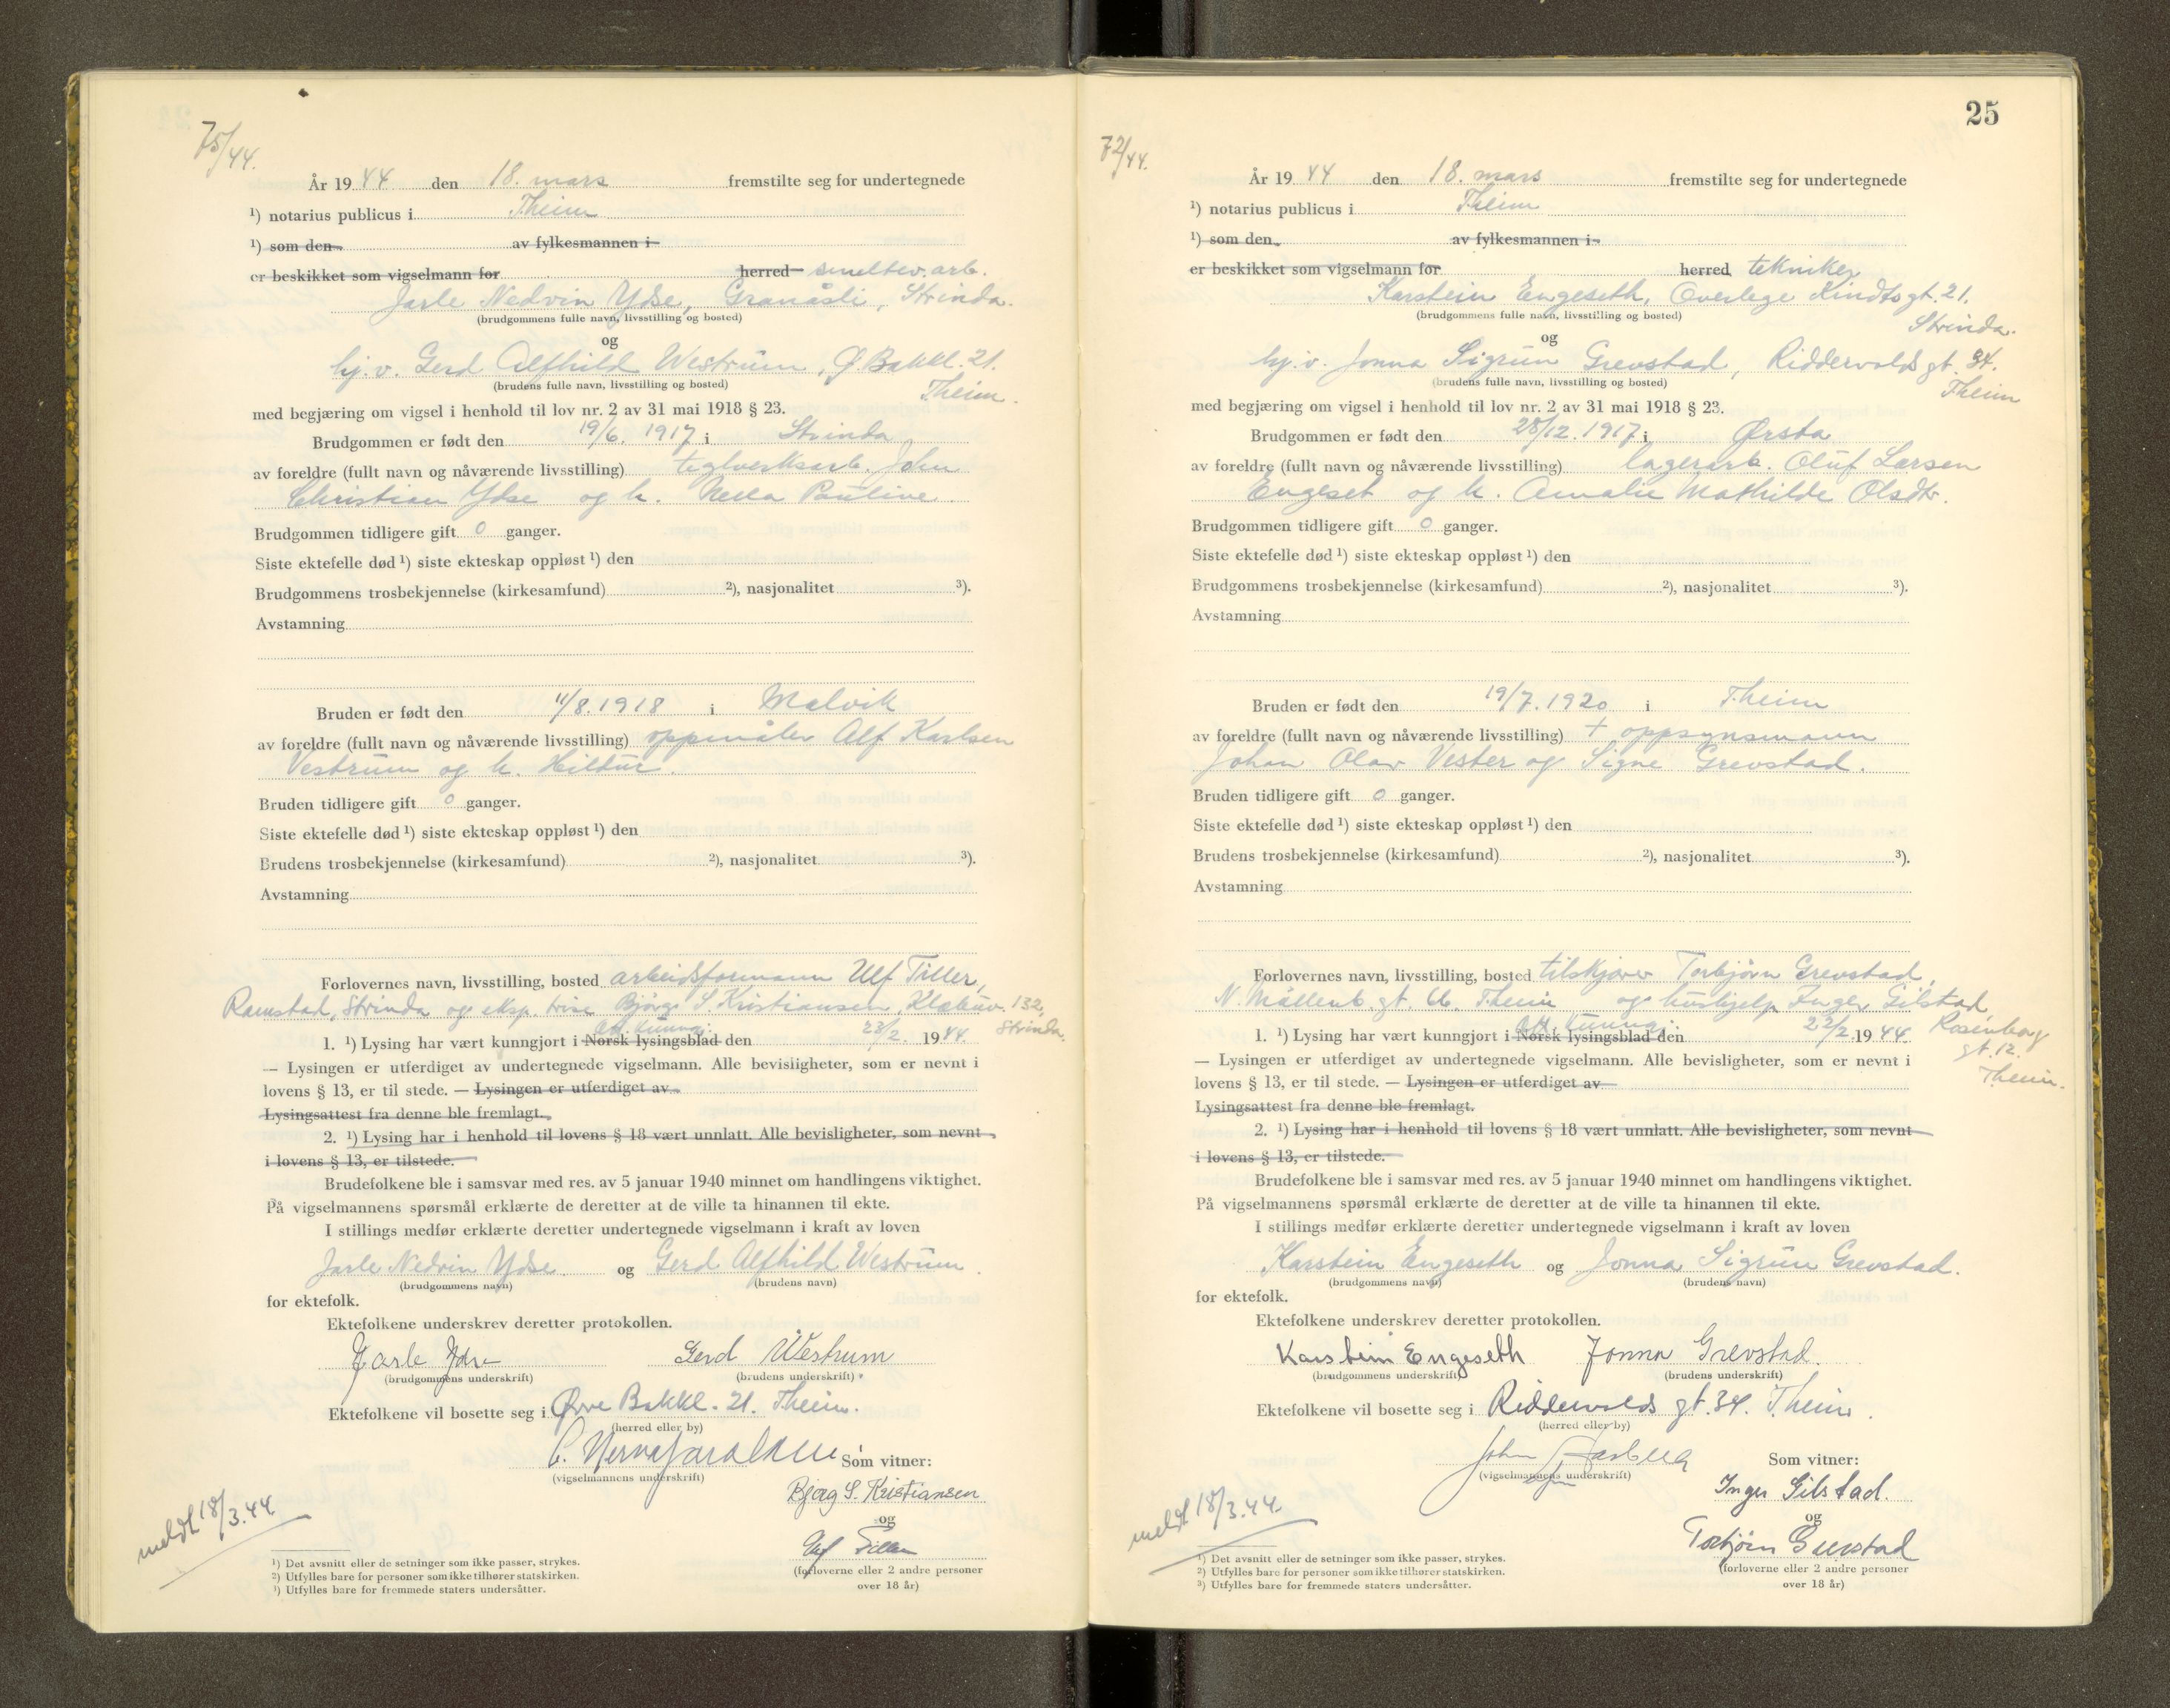 75/44.
År 1944 den 18. mars fremstilte seg for undertegnede
¹) notarius publicus i T.heim
¹) som den av fylkesmannen i
er beskikket som vigselmann for herred smeltev.arb.
Jarle Nedvin Ydse, Granåsli, Strinda.
(brudgommens fulle navn, livsstilling og bosted)
og
hj.v. Gerd Alfhild Westrum, Ø. Bakkl. 21.
(brudens fulle navn, livsstilling og bosted)
T.heim.
med begjæring om vigsel i henhold til lov nr. 2 av 31 mai 1918 § 23.
Brudgommen er født den 19/6. 1917 i Strinda
av foreldre (fullt navn og nåværende livsstilling) teglverksarb. John
Christian Ydse og h. Nella Pauline.
Brudgommen tidligere gift 0 ganger.
Siste ektefelle død ¹) siste ekteskap oppløst ¹) den
Brudgommens trosbekjennelse (kirkesamfund) ²), nasjonalitet ³).
Avstamning
Bruden er født den 11/8. 1918 i Malvik
av foreldre (fullt navn og nåværende livsstilling) oppmåler Alf Karlsen
Vestrum og h. Hildur.
Bruden tidligere gift 0 ganger.
Siste ektefelle død ¹) siste ekteskap oppløst ¹) den
Brudens trosbekjennelse (kirkesamfund) ²), nasjonalitet ³).
Avstamning
Forlovernes navn, livsstilling, bosted arbeidsformann Ulf Tiller,
Ramstad, Strinda og eksp. trise Bjørg S. Kristiansen, Klæbuv. 132,
Strinda.
off. kunngj.
1. ¹) Lysing har vært kunngjort i Norsk lysingsblad den 23/2. 1944.
— Lysingen er utferdiget av undertegnede vigselmann. Alle bevisligheter, som er nevnt i
lovens § 13, er til stede. — Lysingen er utferdiget av
Lysingsattest fra denne ble fremlagt.
2. ¹) Lysing har i henhold til lovens § 18 vært unnlatt. Alle bevisligheter, som nevnt
i lovens § 13, er tilstede.
Brudefolkene ble i samsvar med res. av 5 januar 1940 minnet om handlingens viktighet.
På vigselmannens spørsmål erklærte de deretter at de ville ta hinannen til ekte.
I stillings medfør erklærte deretter undertegnede vigselmann i kraft av loven
Jarle Nedvin Ydse og Gerd Alfhild Westrum.
(brudgommens navn) (brudens navn)
for ektefolk.
Ektefolkene underskrev deretter protokollen.
Jarle Ydse Gerd Westrum
(brudgommens underskrift) (brudens underskrift)
Ektefolkene vil bosette seg i Øvre Bakkl. 21. T.heim.
(herred eller by)
Som vitner:
(vigselmannens underskrift)
Bjørg S. Kristiansen
og
Ulf Tiller
(forloverne eller 2 andre personer
over 18 år)
meldt 18/3.44.
¹) Det avsnitt eller de setninger som ikke passer, strykes.
²) Utfylles bare for personer som ikke tilhører statskirken.
³) Utfylles bare for fremmede staters undersåtter.
25
72/44.
År 1944 den 18. mars fremstilte seg for undertegnede
¹) notarius publicus i T.heim
¹) som den av fylkesmannen i
er beskikket som vigselmann for herred tekniker
Karstein Engeseth, Overlege Kindts gt. 21.
Strinda.
(brudgommens fulle navn, livsstilling og bosted)
og
hj.v. Jonna Sigrun Grevstad, Riddervolds gt. 34.
(brudens fulle navn, livsstilling og bosted)
T.heim
med begjæring om vigsel i henhold til lov nr. 2 av 31 mai 1918 § 23.
Brudgommen er født den 28/12. 1917 i Ørsta
av foreldre (fullt navn og nåværende livsstilling) lagerarb. Oluf Larsen
Engeset og h. Amalie Mathilde Olsdtr.
Brudgommen tidligere gift 0 ganger.
Siste ektefelle død ¹) siste ekteskap oppløst ¹) den
Brudgommens trosbekjennelse (kirkesamfund) ²), nasjonalitet ³).
Avstamning
Bruden er født den 19/7. 1920 i T.heim
av foreldre (fullt navn og nåværende livsstilling) + oppsynsmann
Johan Olav Vester og Signe Grevstad.
Bruden tidligere gift 0 ganger.
Siste ektefelle død ¹) siste ekteskap oppløst ¹) den
Brudens trosbekjennelse (kirkesamfund) ²), nasjonalitet ³).
Avstamning
Forlovernes navn, livsstilling, bosted tilskjærer Torbjørn Grevstad,
N. Møllenb. gt. 66. T.heim og hushjelp Inger Gilstad
Rosenborg
gt. 12.
T.heim.
off. kunngj.
1. ¹) Lysing har vært kunngjort i Norsk lysingsblad den 22/2. 1944
— Lysingen er utferdiget av undertegnede vigselmann. Alle bevisligheter, som er nevnt i
lovens § 13, er til stede. — Lysingen er utferdiget av
Lysingsattest fra denne ble fremlagt.
2. ¹) Lysing har i henhold til lovens § 18 vært unnlatt. Alle bevisligheter, som nevnt
i lovens § 13, er tilstede.
Brudefolkene ble i samsvar med res. av 5 januar 1940 minnet om handlingens viktighet.
På vigselmannens spørsmål erklærte de deretter at de ville ta hinannen til ekte.
I stillings medfør erklærte deretter undertegnede vigselmann i kraft av loven
Karstein Engeseth og Jonna Sigrun Grevstad.
(brudgommens navn) (brudens navn)
for ektefolk.
Ektefolkene underskrev deretter protokollen.
Karstein Engeseth Jonna Grevstad.
(brudgommens underskrift) (brudens underskrift)
Ektefolkene vil bosette seg i Riddervolds gt. 34. T.heim.
(herred eller by)
John Som vitner:
(vigselmannens underskrift)
Inger Gilstad.
og
Torbjörn Grevstad
(forloverne eller 2 andre personer
over 18 år)
meldt 18/3.44.
¹) Det avsnitt eller de setninger som ikke passer, strykes.
²) Utfylles bare for personer som ikke tilhører statskirken.
³) Utfylles bare for fremmede staters undersåtter.